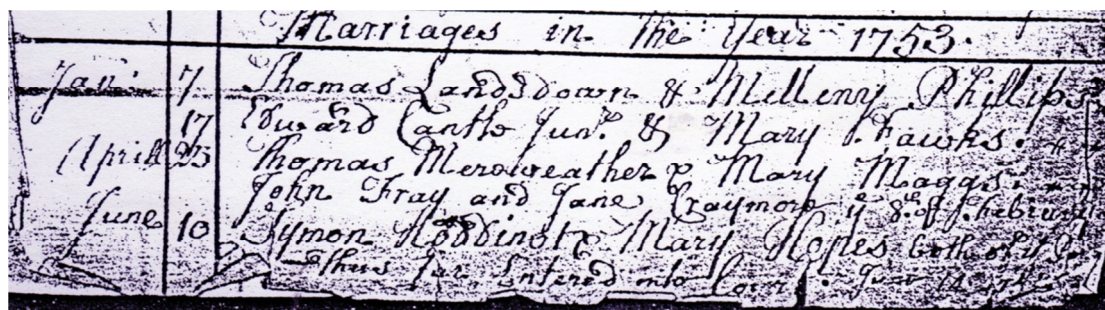 Marriages in the Year 1753.
Jan: 7 Thomas Landsdown & Melleny Phillips
17 Edward Cantle Junr. & Mary Fawks.
Aprill 23 Thomas Mereweather & Mary Maggs.
John Fray and Jane Craymore ye 8th of Febriary
June 10 Symon Noddington & Mary Hopes both of
Thus far Entered into